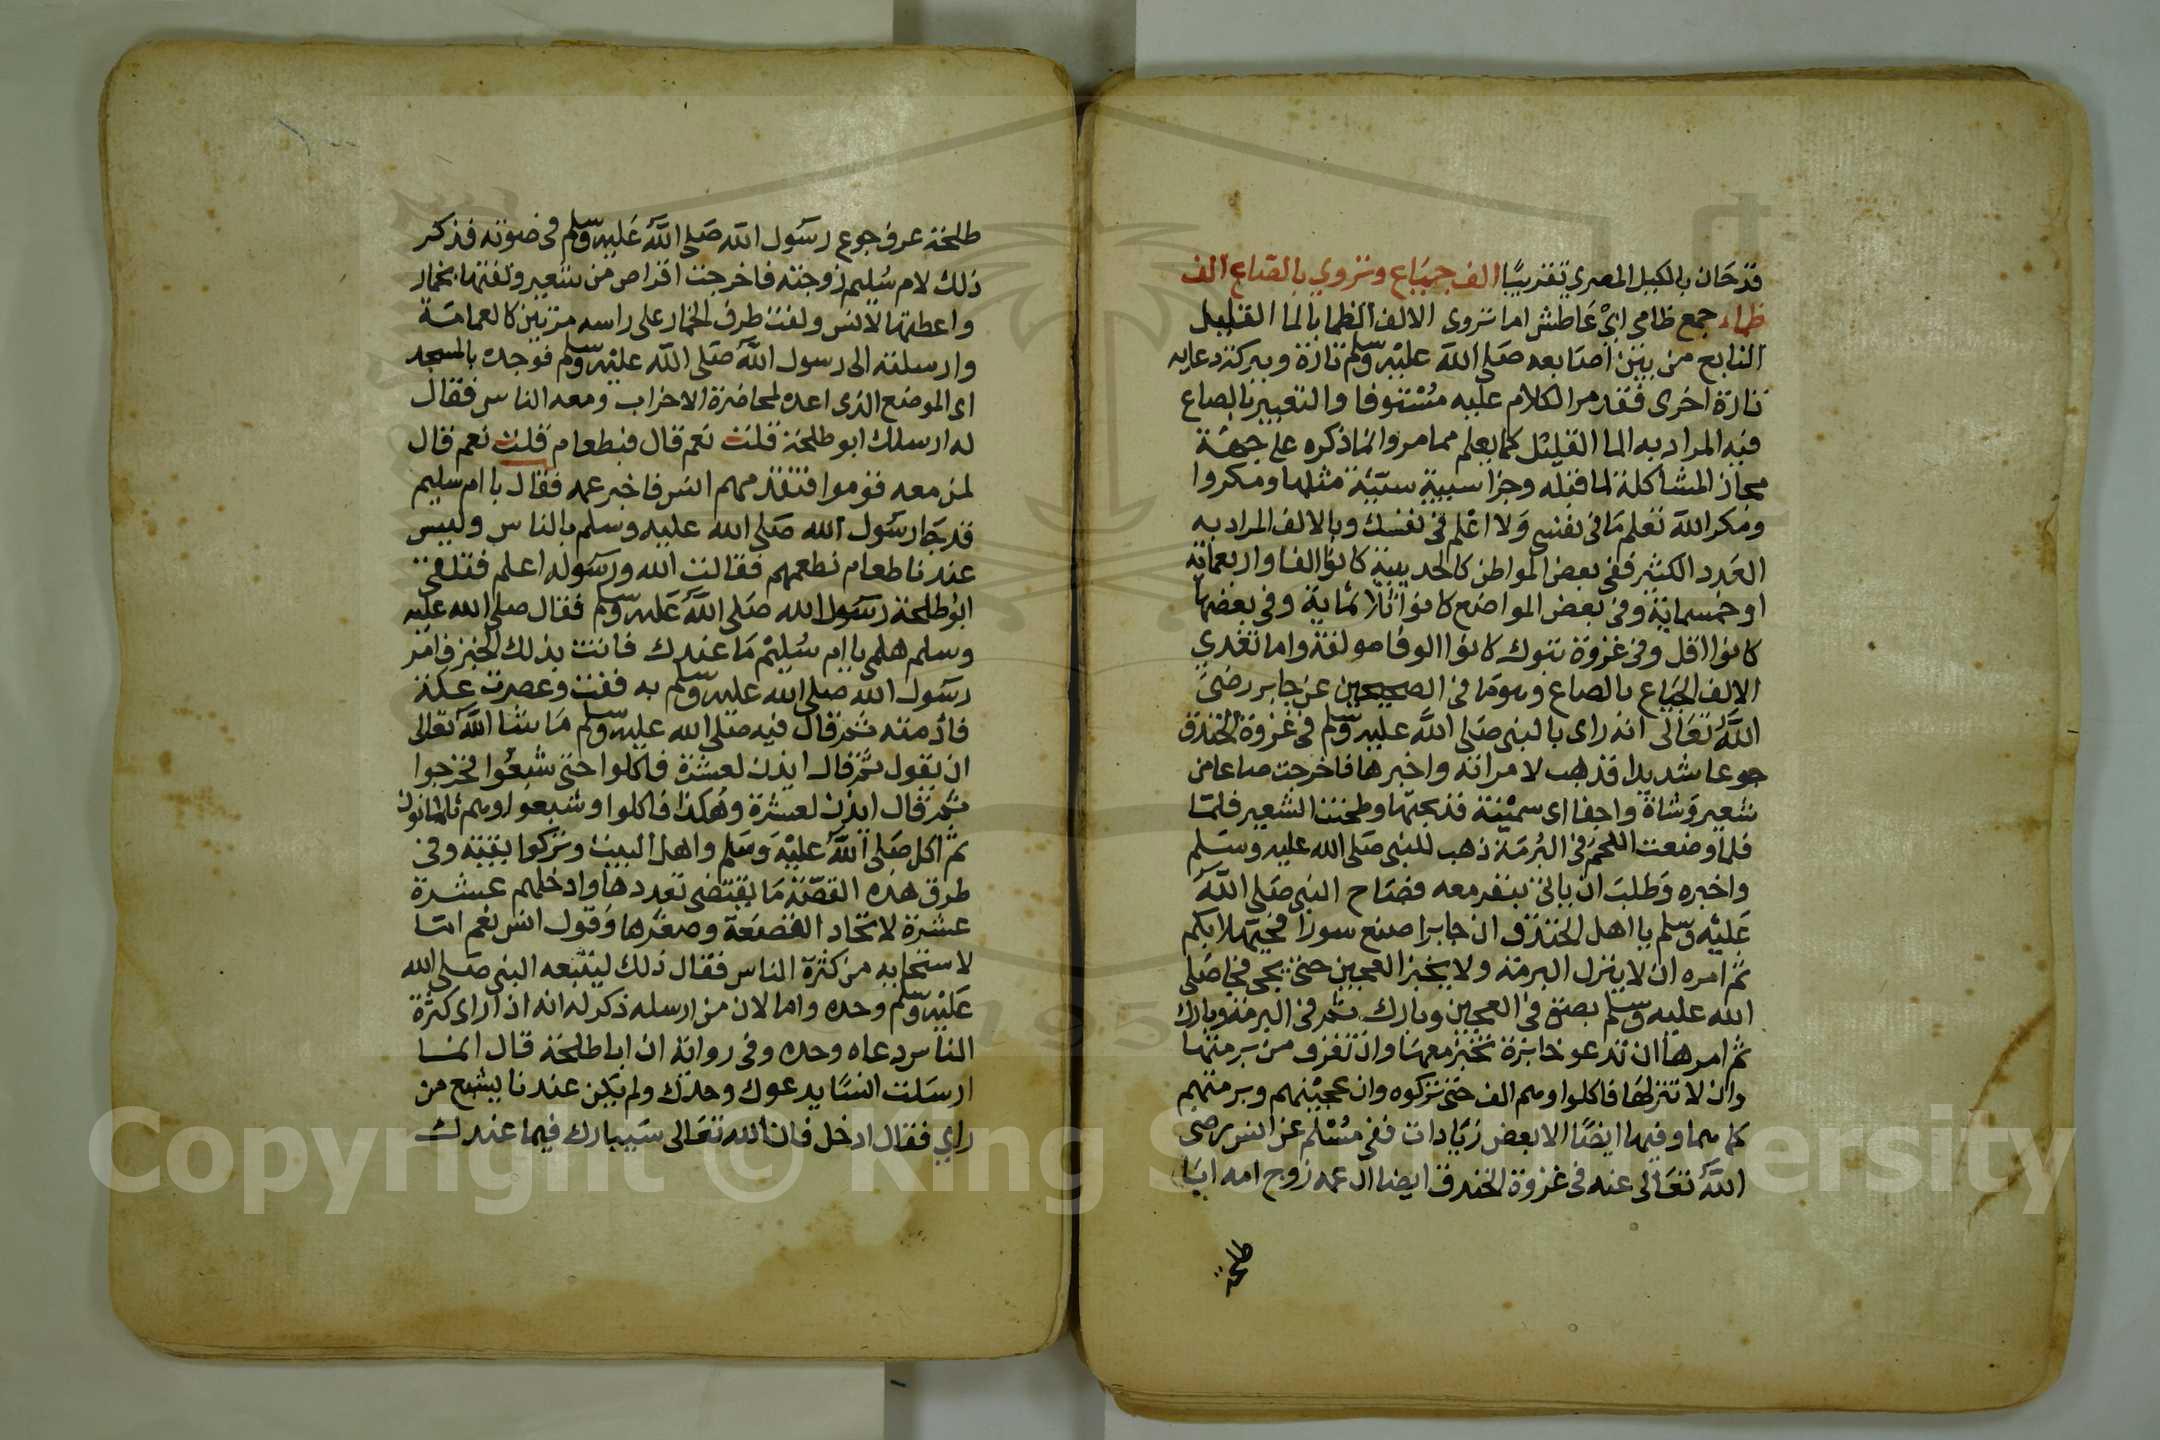 قدحان بالكيل المصري تقريبًا الف جياع وتروي بالصاع الف
ظماء جمع ظامي اي عاطش اما تروى الالف الظما بالما القليل
النابع من بين اصابعه صَلى اللهَ عليْه وسلم تارة وببركة دعايه
تارة اخرى فقد مر الكلام عليه مسْتوفا والتعبير بالصاع
فيه المراد به الما القليْل كما يعلم مما مر وانما ذكره على جهة
مجاز المشاكلة لما قبله وجزا سيية سيّئة مثلها ومكروا
ومكر اللهَ تعلم مَا فى نفسى وَلا اعْلم فى نفسك وبالالف المراد به
العَدد الكثير ففى بعض المواطن كالحديبية كانوا الفا واربعماية
او خمسماية وفى بعض المواضع كانوا ثلاثماية وفى بعضها
كانوا اقل وفى غزوة تبوك كانوا الوفا مولفة واما تغدي
الالف الجياع بالصاع وهومَا فى الصحيحين عن جابر رضىَ
اللَّه تعَالى انه راى بالنبى صَلى اللَّه عليه وسلم فى غزوة الخندق
جوعا شديدا فذهب لامراته واخبرها فاخرجت صاعا من
شعير وَشاة واجفا اى سميْنة فذبحتها وطحنت الشعير فلمّا
فلما وضعت اللحمَ فى البُرمَة ذهب للنبى صَلى الله عليه وسَلم
واخبره وَطلبَ ان ياتى بنفر معه فصَاح النبى صَلى اللَّه
عَليْه وسلم يا اهل الخندق ان جابرا صنع سورا فحيّهلا بكم
ثم امره ان لا ينزل البرمة ولا يخبز العجين حتى يجى فجا صَلى
الله عليه وسلم بصق فى العجين وبارك ثمر فى البرمة وبارك
ثم امرها ان تدعو خابزة تخبز معهَا وان تغرف من برمتها
وان لا تنزلهَا فاكلوا وهم الف حتى تركوه وان عجيْنهم وبرمتهم
كما هما وفيهما ايضًا الا بعض زيَادات ففى مسْلم عن انس رضى
اللَّه تعَالى عنه فى غزوة الخندق ايضا ان عمه زوج امه ابَا
طلحة
طلحة عرف جوع رسَول اللَه صَلى اللَّه عَليه وسلم فى صَوته فذكر
ذلك لام سُليم زوجته فاخرجت اقراص من شعير ولفتها بخمار
واعطتها لانس ولفت طرف الخمار على راسه مرتين كالعمامَة
وارسلته الى رسول اللَّه صَلى اللَه عليْه وسلم فوجده بالمسجد
اى الموضع الذى اعده لمحاضرة الاحزاب ومعه الناس فقال
له ارسلك ابو طلحة قلت نعم قال فبطعام قلت نعم قال
لمن معه قوموا فتقدمهم انس فاخبر عمه فقال يا ام سليم
قد جَا رسَول الله صَلى الله عليه وسلم بالناس وليس
عندنا طعام نطعمهم فقالت الله ورسَوله اعلم فتلقى
ابُو طلحة رسَول الله صَلى اللَّه عَليه وسلم فقال صلى الله عليه
وسلم هلمى يا ام سُليْم مَا عندك فاتت بذلك الخبز فامر
رسَول الله صَلى الله عليه وسلم به ففت وعصرت عكة
فادمته ثمر قال فيه صَلى الله عليه وسلم مَا شا اللَّه تعالى
ان يقول ثمر قال ايذن لعشرة فاكلوا حتى شبعُوا فخرجوا
ثمر قال ايذن لعشرة وهُكذا فاكلوا وشبعوا وهم ثمانون
ثم اكل صَلى اللَّه عليْه وَسَلم واهل البيت وتركوا بقية وفى
طرق هذه القصّة مَا يقتضى تعددها وادخلهم عشرة
عشرة لاتحاد القصعَة وصغرها وقول انس نعم امّا
لاستحايه من كثرة الناس فقال ذلك ليتبعه النبى صَلى الله
عَليْه وسلم وحده واما لان من ارسله ذكر له انه ان راى كثرة
الناس دعاه وحده وفى رواية ان ابا طلحة قال انما
ارسَلت انسًا يدعوك وحدك ولم يكن عندنا يشبع من
راي فقال ادخل فان الله تعَالى سَيبارك فيما عندك
Copyright © King Saud University